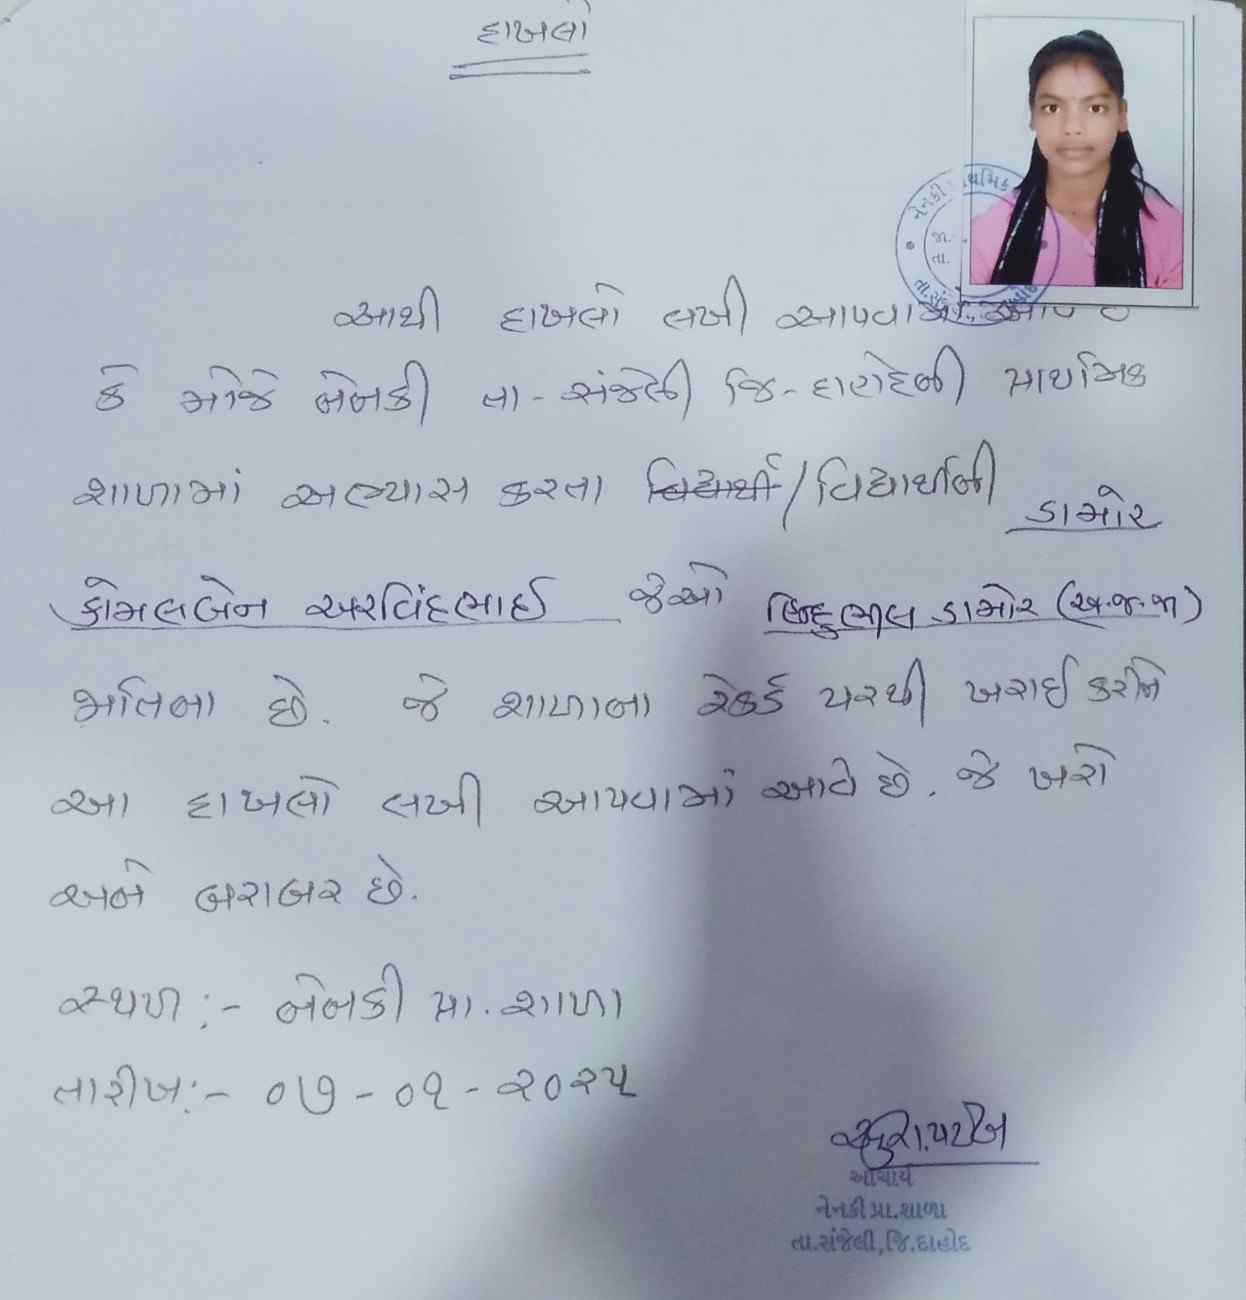 દાખલો
આથી દાખલો લખી આપવામાં આવે છે
કે મોજે નેનકી તા - સંજેલી જિ - દાહોદની પ્રાથમિક
શાળામાં અભ્યાસ કરતા વિદ્યાર્થી / વિદ્યાર્થીની ડામોર
કોમલબેન અરવિંદભાઈ જેઓ હિન્દુ ભીલ ડામોર (અ.જ.જા)
જાતિના છે. જે શાળાના રેકર્ડ પરથી ખરાઈ કરીને
આ દાખલો લખી આપવામાં આવે છે. જે ખરો
અને બરાબર છે.
સ્થળ :- નેનકી પ્રા. શાળા
તારીખ:- ૦૭ - ૦૧ - ૨૦૨૫
આચાર્ય
નેનકી પ્રા.શાળા
તા.સંજેલી,જિ.દાહોદ
નેનકી પ્રાથમિક
જા.
તા.
તા.સં